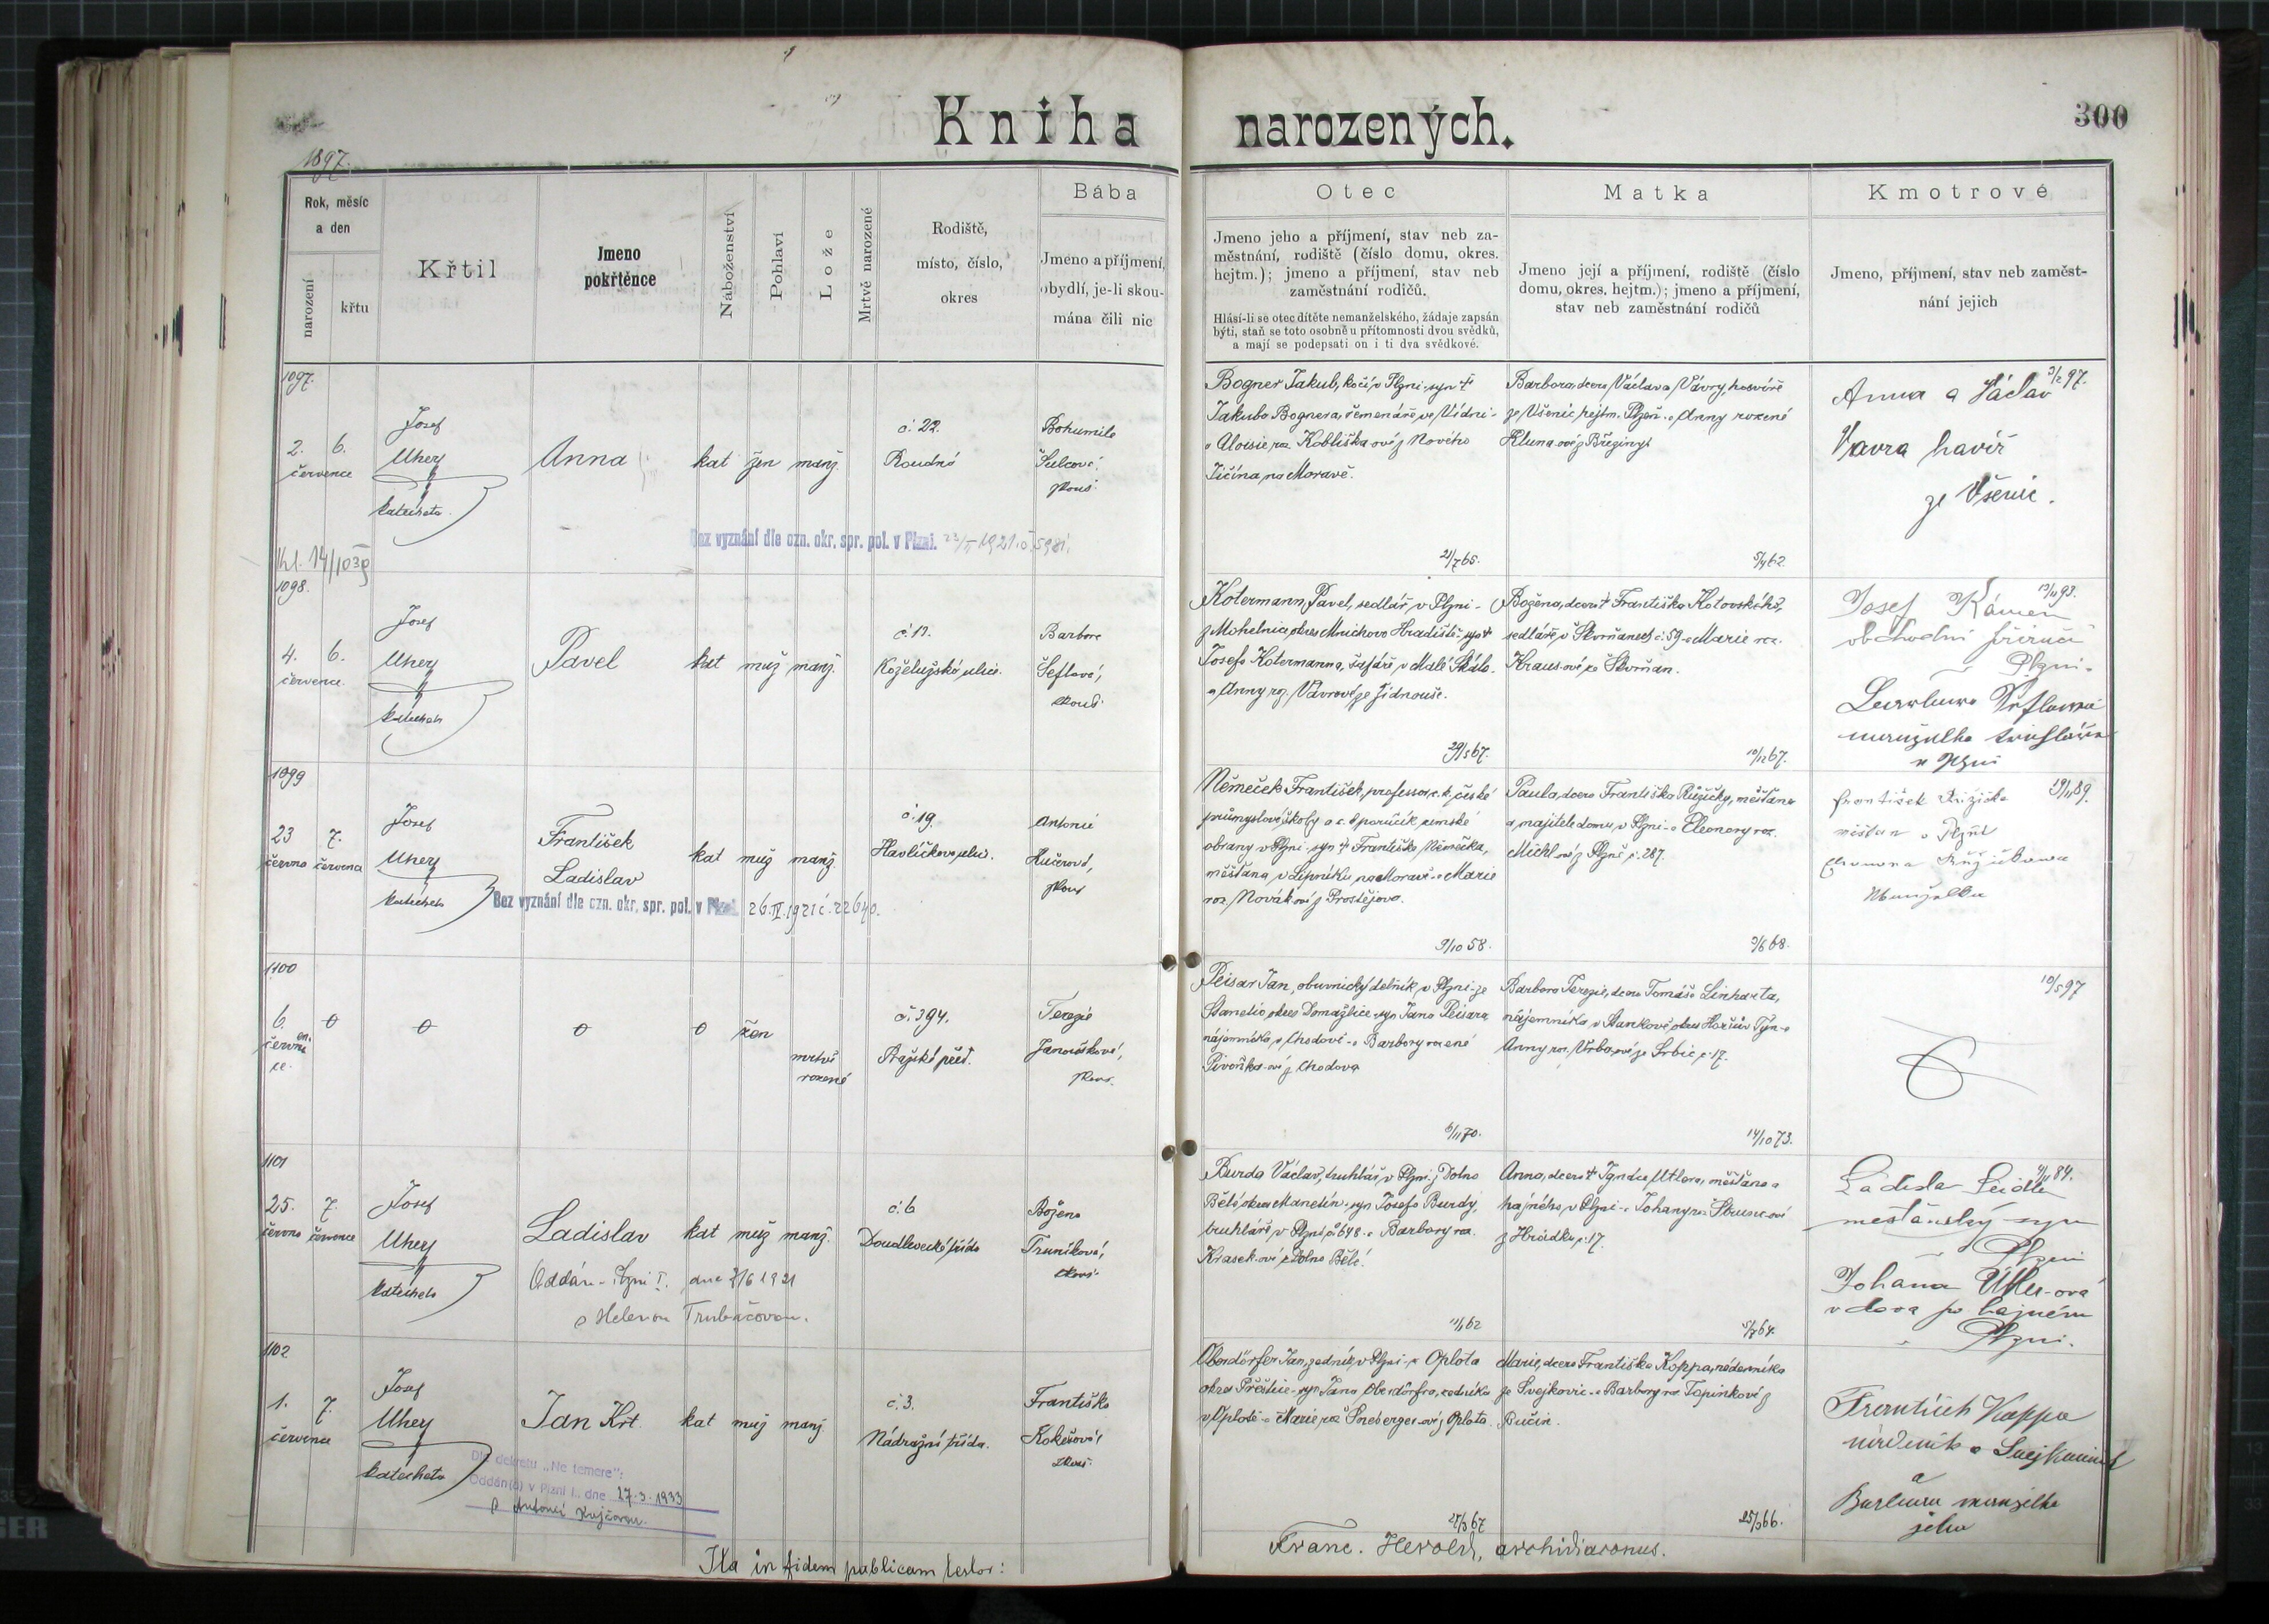 Kniha narozených.
300
1897.
Rok, měsíc
a den
narození
křtu
Křtil
Jmeno
pokřtěnce
Náboženství
Pohlaví
Lože
Mrtvě narozené
Rodiště,
místo, číslo,
okres
Bába
Jmeno a příjmení,
obydlí, je-li skou-
mána čili nic
Otec
Jmeno jeho a příjmení, stav neb za-
městnání, rodiště (číslo domu, okres.
hejtm.); jmeno a příjmení, stav neb
zaměstnání rodičů.
Hlásí-li se otec dítěte nemanželského, žádaje zapsán
býti, staň se toto osobně u přítomnosti dvou svědků,
a mají se podepsati on i ti dva svědkové.
Matka
Jmeno její a příjmení, rodiště (číslo
domu, okres. hejtm.); jmeno a příjmení,
stav neb zaměstnání rodičů
Kmotrové
Jmeno, příjmení, stav neb zaměst-
nání jejich
1097.
2. 6.
července
Josef
Uhery
katecheta
Anna
kat žen manž.
č. 22.
Roudná
Bohumila
Šulcová,
zkouš.
Bez vyznání dle ozn. okr. spr. pol. v Plzni.
Bogner Jakub, kočí v Plzni - syn †
Jakuba Bognera, řemenáře ve Vídni -
a Aloisie roz. Kobliška-ové z Nového
Jičína na Moravě.
21/7 65.
Barbora, dcera Václava Vávry, havíře
ze Všenic hejtm. Plzeň - a Anny rozené
Hluna-ové z Březiny
5/4 62.
Anna a Václav
Vavra havíř
ze Všenic.
1098.
4. 6.
července
Josef
Uhery
katecheta
Pavel
kat muž manž.
č. 13.
Koželužská ulice.
Barbora
Šeflová,
zkouš.
Kotermann Pavel, sedlář v Plzni -
z Mohelnice okres Mnichovo Hradiště - syn †
Josefa Kotermanna, šafáře v Malé Skále -
a Anny roz. Vávrové ze Židnouše.
29/5 67.
Božena, dcera † Františka Kotovského,
sedláře v Skvrňanech č. 59 - a Marie roz.
Kraus-ové ze Skvrňan.
10/12 67.
Josef Kámen
obchodní příručí
v Plzni -
v Plzni
1099
23 7.
června července
Josef
Uhery
katecheta
František
Ladislav
kat muž manž.
č. 19.
Havlíčkova ulice.
Antonie
Kučerová,
zkouš.
Bez vyznání dle ozn. okr. spr. pol. v Plzni. 26. IV. 1921 č. 22640.
Němeček František, professor c. k. české
průmyslové školy a c. k. poručík zemské
obrany v Plzni - syn † Františka Němečka,
měšťana v Lipníku na Moravě - a Marie
roz. Novák-ové z Prostějova.
9/10 58.
Paula, dcera Františka Růžičky, měšťana
a majitele domu v Plzni - a Eleonory roz.
Michl-ové z Plzně č. 287.
3/6 68.
František Růžička
měšťan v Plzni
Eleonora Růžičkova
Manželka
1100
6.
července
0
0
0
0
žen
mrtvě
rozené
č. 394.
Pražské před.
Terezie
Janoušková,
zkouš.
Peisar Jan, obuvnický dělník v Plzni - ze
Stanětic okres Domažlice - syn Jana Peisara
nájemníka v Chodově - a Barbory rozené
Pivoňka-ové z Chodova
6/11 70.
Barbora Terezie, dcera Tomáše Linharta,
nájemníka v Staňkově okres Horšův Týn - a
Anny roz. Vrba-ové ze Srbic č. 17.
14/10 73.
10/5 97
1101
25. 7.
června července
Josef
Uhery
katecheta
Ladislav
kat muž manž.
č. 6
Doudlevecká třída
Božena
Truníková,
zkouš.
Oddán v Plzni I. dne 7/6 1921
s Helenou Trubačovou.
Burda Václav, truhlář v Plzni - z Dolní
Bělé okres Manetín - syn Josefa Burdy,
truhláře v Plzni č. 648 - a Barbory roz.
Krasek-ové z Dolní Bělé.
Anna, dcera † Ignáce Utlera, měšťana a
hajného v Plzni - a Johany roz. Strunc-ové
z Hrádku č. 17.
5/7 64.
měšťanský syn
v Plzni
Johana Utler-ová
vdova po hajném
v Plzni.
1102
1. 7.
července
Josef
Uhery
katecheta
Jan Křt.
kat muž manž.
č. 3.
Nádražní třída.
Františka
Kokešová,
zkouš.
Dle dekretu „Ne temere":
Oddán(a) v Plzni I. dne 27.3.1933
s Antonií Krejčovou.
Oberdörfer Jan, zedník v Plzni - z Oplota
okres Přeštice - syn Jana Oberdörfra, zedníka
v Oplotě - a Marie roz. Sneberger-ové z Oplota.
27/3 67
Marie, dcera Františka Koppa, nádeníka
ze Svejkovic - a Barbory roz. Topinkové z
Bučin.
25/3 66.
František Kappa
nádeník a
a
Barbora manželka
jeho
Ita in fidem publicam testor:
Franc. Herold, archidiaconus.